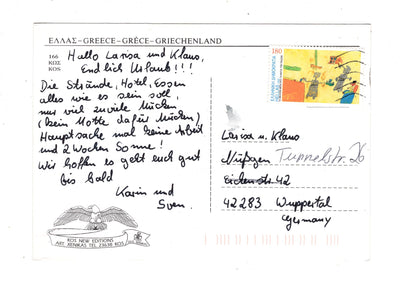 ΕΛΛΑΣ–GREECE–GRÈCE–GRIECHENLAND
166
ΚΩΣ
KOS
Hallo Larisa und Klaus,
Endlich Urlaub!!!
Die Strände, Hotel, Essen
alles wie es sein soll,
nur viel zuviele Mücken
(kein Motte dafür Mücken)
Hauptsache mal keine Arbeit
und 2 Wochen Sonne!
Wir hoffen es geht euch gut
bis bald
Karin und
Sven.
180
Larisa u. Klaus
Nüßgen Tunnelstr. 26
Eichenstr. 42
42283 Wuppertal
Germany
KOS NEW EDITIONS
ART. XENIKAS TEL 23636 KOS